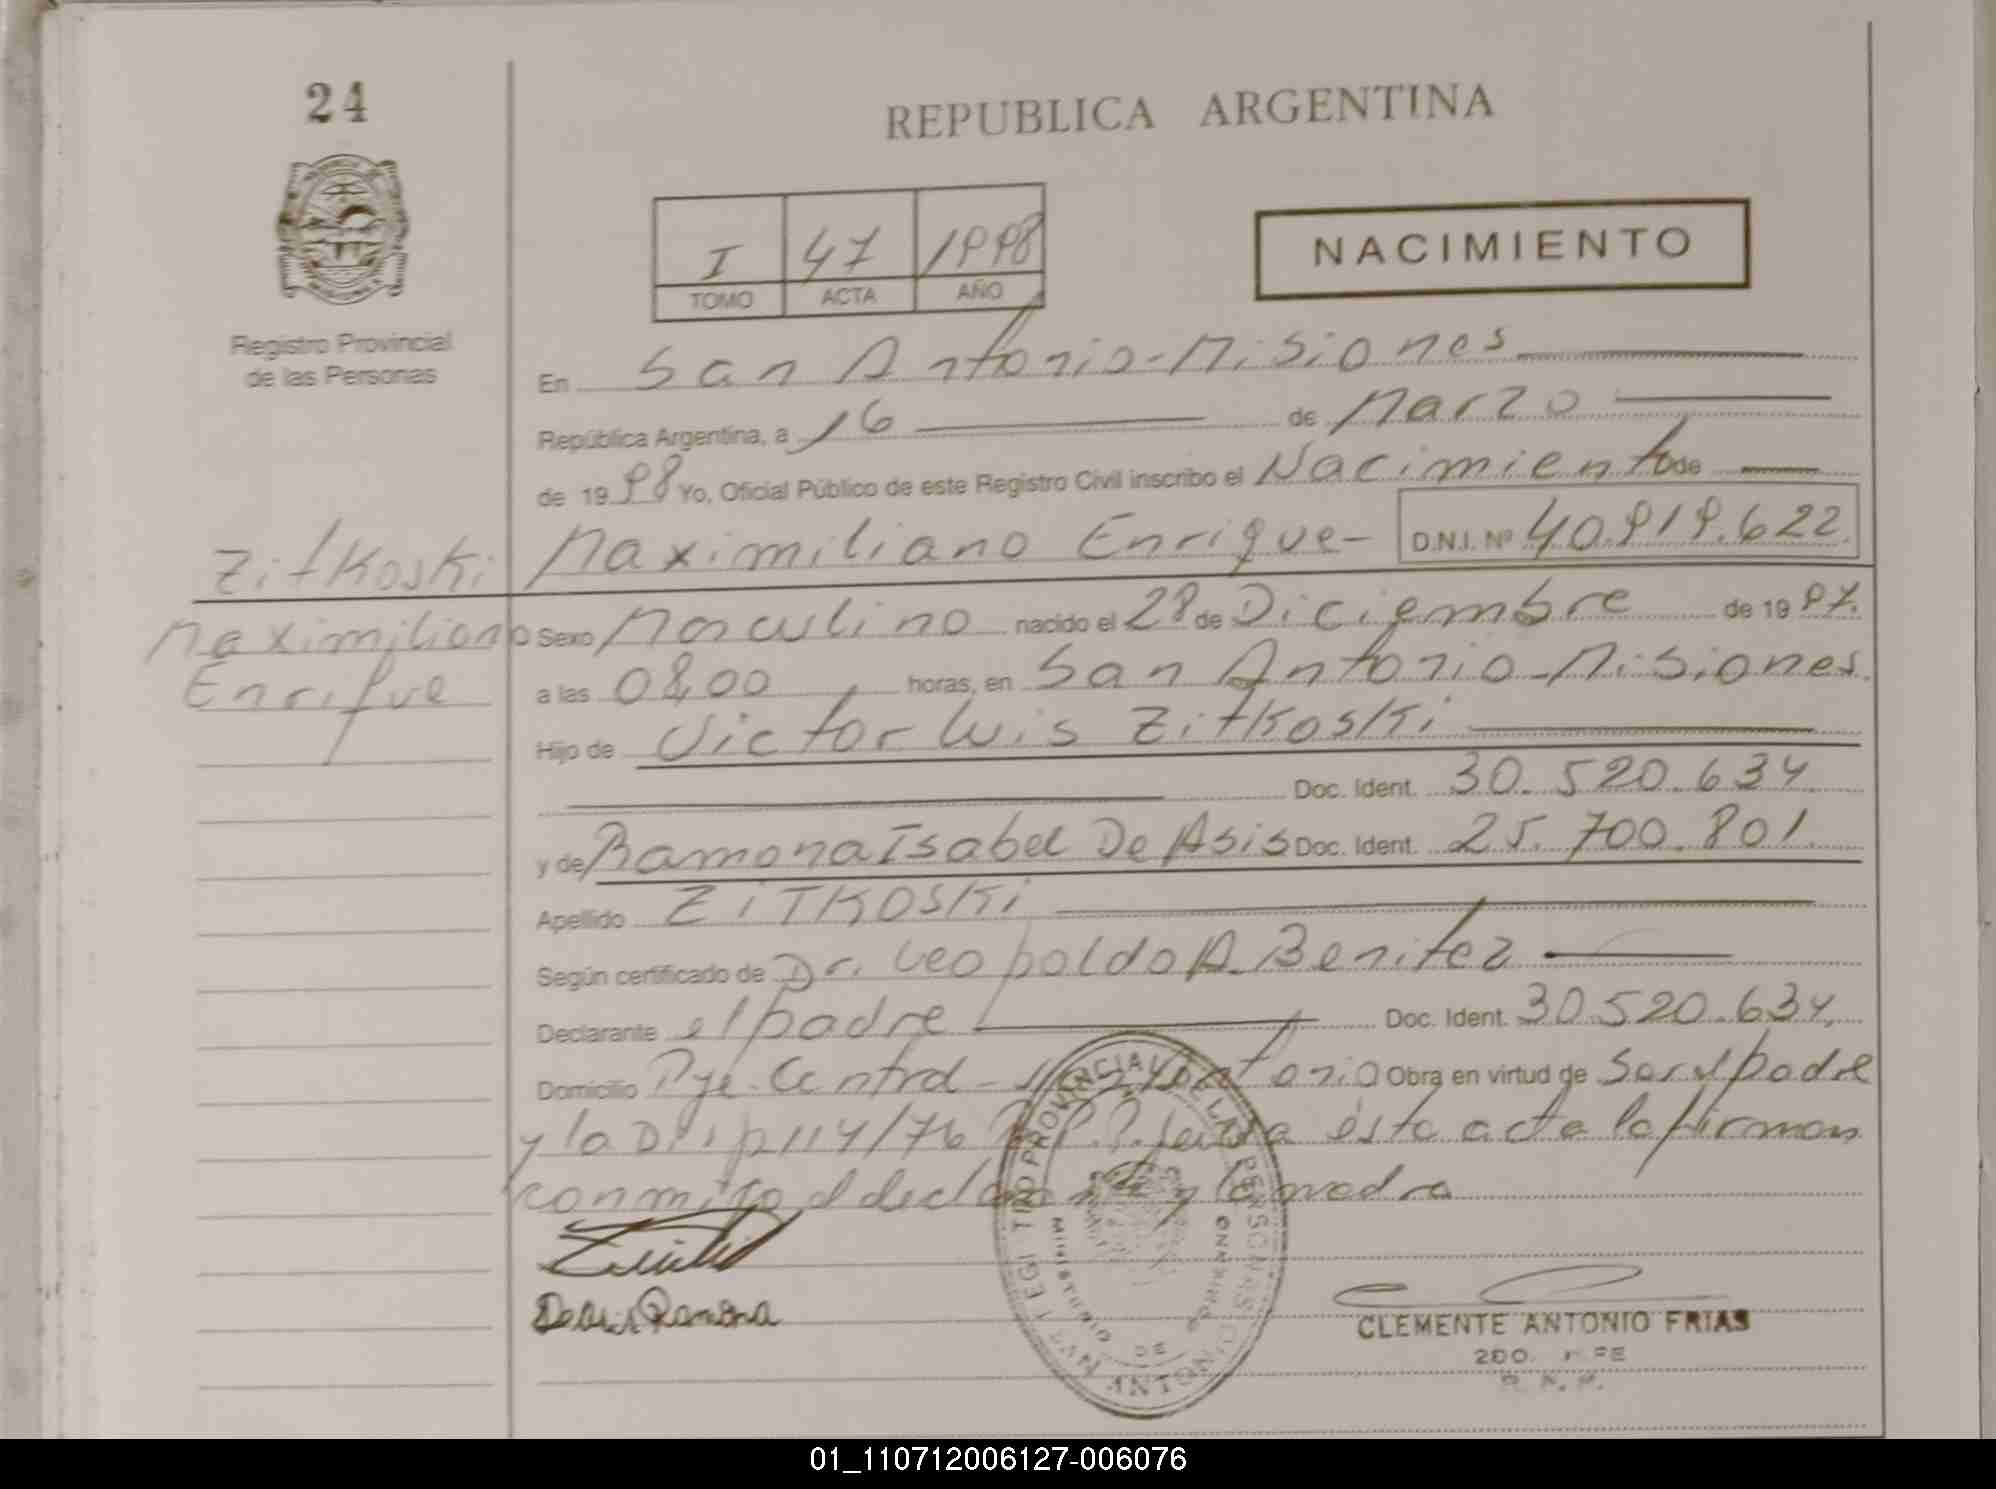 24
REPUBLICA ARGENTINA
I 47 1998
TOMO ACTA AÑO
NACIMIENTO
Registro Provincial
de las Personas
En San Antonio - Misiones
República Argentina, a 16 de Marzo
de 1998 Yo, Oficial Público de este Registro Civil inscribo el Nacimiento de
Zitkoski
Maximiliano
Enrique
Maximiliano Enrique - D.N.I. Nº 40.919.622
Sexo Masculino nacido el 28 de Diciembre de 1997.
a las 08,00 horas, en San Antonio - Misiones.
Hijo de Victor Luis Zitkoski
Doc. Ident. 30.520.634
y de Ramona Isabel De Asis Doc. Ident. 25.700.801
Apellido ZITKOSKI
Según certificado de Dr. Leopoldo A. Benitez
Declarante el padre Doc. Ident. 30.520.634.
Domicilio Pje. Central - San Antonio Obra en virtud de Ser el padre
y la 114/76 ésta acta la firman
conmigo el declarante y la madre
Ramona
REGISTRO PROVINCIAL DE LAS PERSONAS
MINISTERIO DE GOBIERNO
SAN ANTONIO
CLEMENTE ANTONIO FRIAS
R. P. P.
01_110712006127-006076